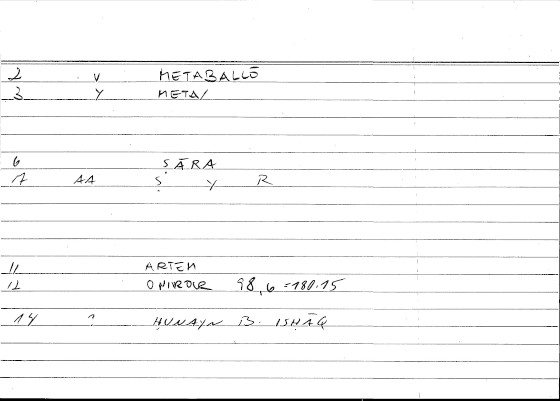 2 V METABALLŌ
3 Y META/
6 ṢĀRA
7 AA Ṣ Y R
11 ARTEM
12 ONIROCR 98,6=180.15
14 ? ḤUNAYN B. ISḤĀQ